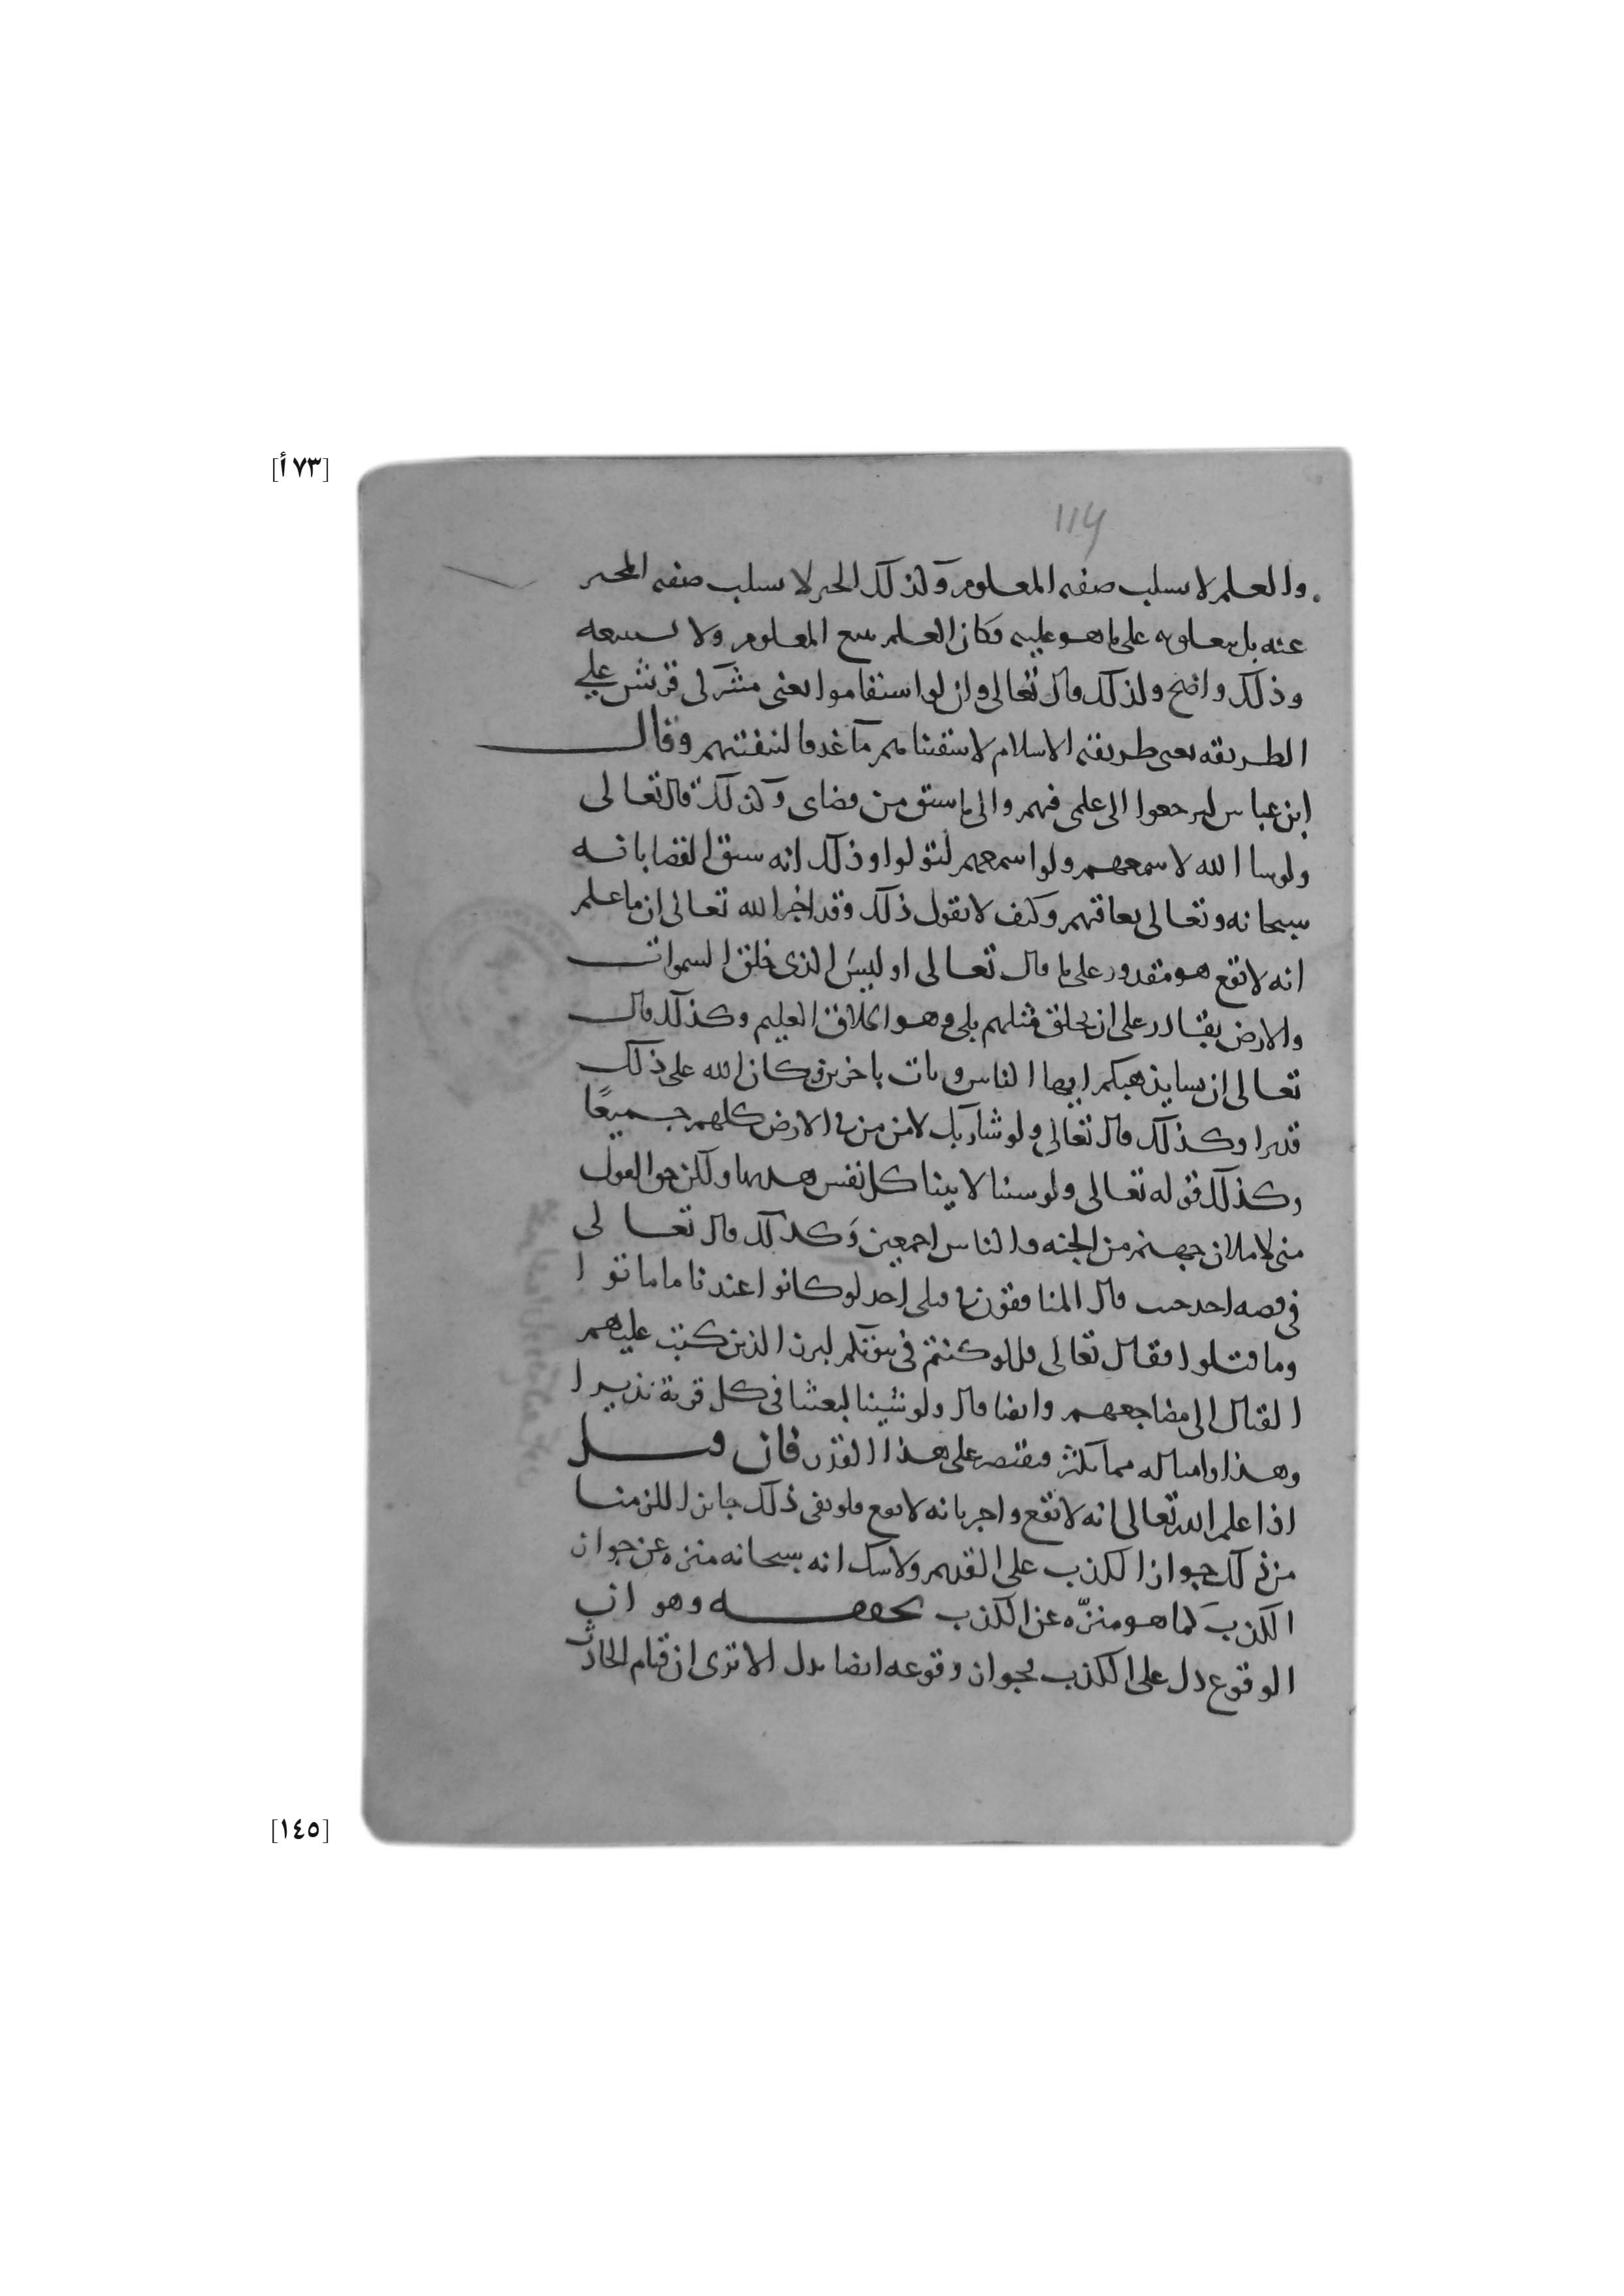 [٧٣أ]
114
والعلم لا يسلب صفه المعلوم وكذلك الخبر لا يسلب صفه المخبر
عنه بل يتعلق به على ما هو عليه فكان العلم يتبع المعلوم ولا يستتبعه
وذلك واضح ولذلك قال تعالى وان لو استقاموا يعنى مشركى قريش على
الطريقه يعنى طريقه الاسلام لاسقيناهم مآ غدقا لنفتنهم وقال
ابن عباس ليرجعوا الى علمى فيهم والى ما سبق من قضاى وكذلك قال تعالى
ولو شا الله لاسمعهم ولو اسمعهم لتولوا وذلك انه سبق القضا بانه
سبحانه وتعالى يعاقبهم وكيف لا يقول ذلك وقد اخبر الله تعالى ان ما علم
انه لا يقع هو مقدور على ما قال تعالى اوليس الذى خلق السموات
والارض بقادر على ان يخلق مثلهم بلى وهو الخلاق العليم وكذلك قال
تعالى ان يشا يذهبكم ايها الناس ويات باخرين وكان الله على ذلك
قديرا وكذلك قال تعالى ولو شا ربك لامن من فى الارض كلهم جميعًا
وكذلك قوله تعالى ولو شئنا لاتينا كل نفس هديها ولكن حق القول
منى لاملان جهنم من الجنه والناس اجمعين وكذلك قال تعالى
فى قصه احد حيث قال المنافقون فى قتلى احد لو كانوا عندنا ما ماتوا
وما قتلوا فقال تعالى قل لو كنتم فى بيوتكم لبرز الذين كتب عليهم
القتال الى مضاجعهم وايضا قال ولو شيئنا لبعثنا فى كل قرية نذيرا
وهذا وامثاله مما يكثر فيقتصر على هذا القدر فان قيل
اذا علم الله تعالى انه لا يقع واخبر بانه لا يقع فلو بقى ذلك جايزا للزمنا
من ذلك جواز الكذب على القديم ولا شك انه سبحانه منزه عن جواز
الكذب كما هو منزّه عن الكذب تحققه وهو ان
الوقوع دل على الكذب فجواز وقوعه ايضا يدل الا ترى ان قيام الحادث
[١٤٥]